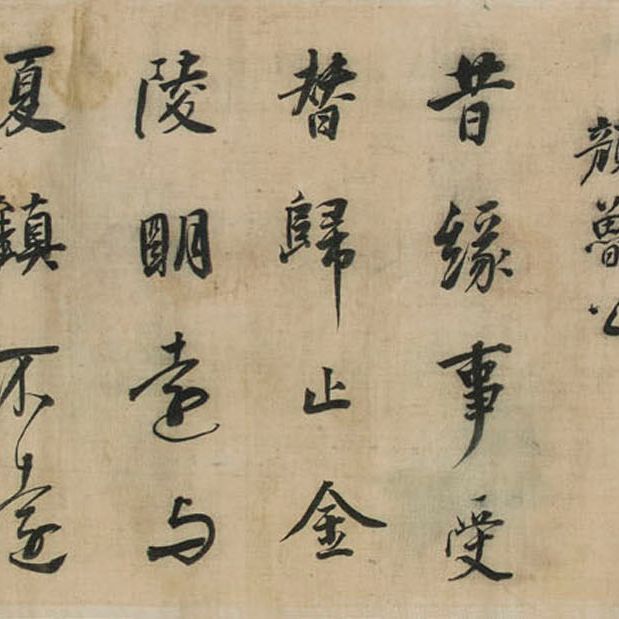 顏魯公
昔緣事受
替歸止金
陵明遠与
夏鎮不遠